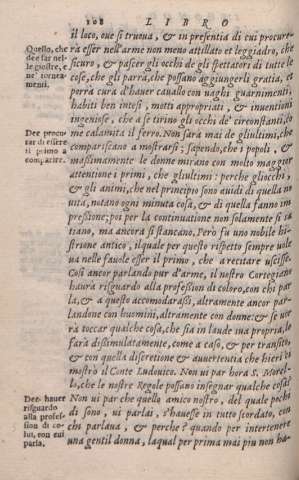 108 LIBRO
il loco, oue si truoua, & in presentia di cui procure-
Quello, che
dee far nel-
le giostre, e
ne' tornea-
menti.
rà esser nell'arme non meno attillato et leggiadro, che
sicuro, & pascer gli occhi de gli spettatori di tutte le
cose, che gli parrà, che possano aggiungerli gratia, et
porrà cura d'hauer cauallo con uaghi guarnimenti,
habiti ben intesi, motti appropriati, & inuentioni
ingeniose, che a se tirino gli occhi de' circonstanti, co
Dee procu-
rar di essere
ti primo a
comparire.
me calamita il ferro. Non sarà mai de gliultimi, che
compariscano a mostrarsi; sapendo, che i popoli, &
massimamente le donne mirano con molto maggior
attentione i primi, che gliultimi: perche gliocchi,
& gli animi, che nel principio sono auidi di quella no
uita, notano ogni minuta cosa, & di quella fanno im
pressione; poi per la continuatione non solamente si sa
tiano, ma ancora si stancano. Però fu uno nobile hi-
strione antico, ilquale per questo rispetto sempre uole
ua nelle fauole esser il primo, che a recitare uscisse.
Così ancor parlando pur d'arme, il nostro Cortegiano
haurà risguardo alla profession di coloro, con chi par
la, & a questo accomodarassi, altramente ancor par-
landone con huomini, altramente con donne: & se uor
rà toccar qualche cosa, che sia in laude sua propria, lo
farà dissimulatamente, come a caso, & per transito,
& con quella discretione & auuertentia che hieri ci
mostrò il Conte Ludouico. Non ui par hora S. Morel-
lo, che le nostre Regole possano insegnar qualche cosa?
Dee hauer
risguardo
alla profes-
sion di co-
lui, con cui
parla.
Non ui par che quello amico nostro, del quale pochi
dì sono, ui parlai, s'hauesse in tutto scordato, con
chi parlaua, & perche? quando per intertenere
una gentil donna, laqual per prima mai piu non ha-